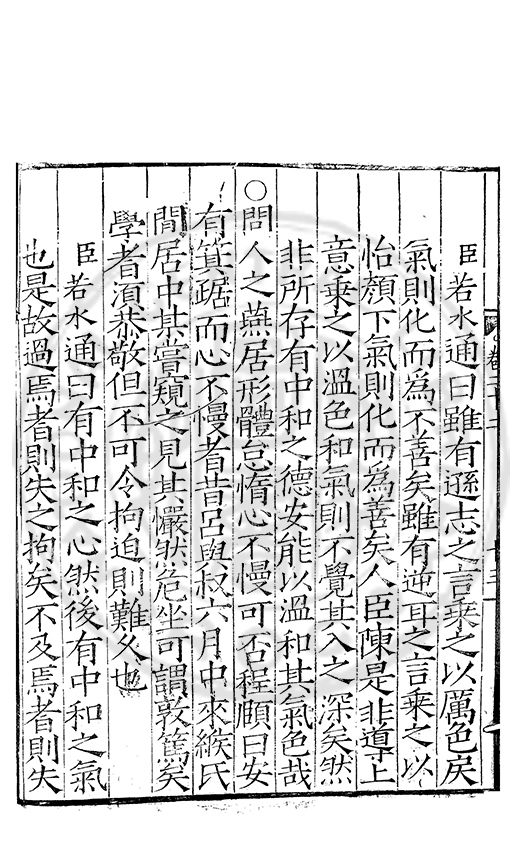 臣若水通曰雖有遜志之言乗之以厲色戾
氣則化而為不善矣雖有逆耳之言乗之以
怡顔下氣則化而為善矣人臣陳是非導上
意乗之以溫色和氣則不覺其入之深矣然
非所存有中和之德安能以溫和其氣色哉
○問人之燕居形體怠惰心不慢可否程頤曰安
有箕踞而心不慢者昔呂與叔六月中來緱氏
間居中某嘗窺之見其儼然危坐可謂敦篤矣
學者湏恭敬但不可令拘迫則難久也
臣若水通曰有中和之心然後有中和之氣
也是故過焉者則失之拘矣不及焉者則失